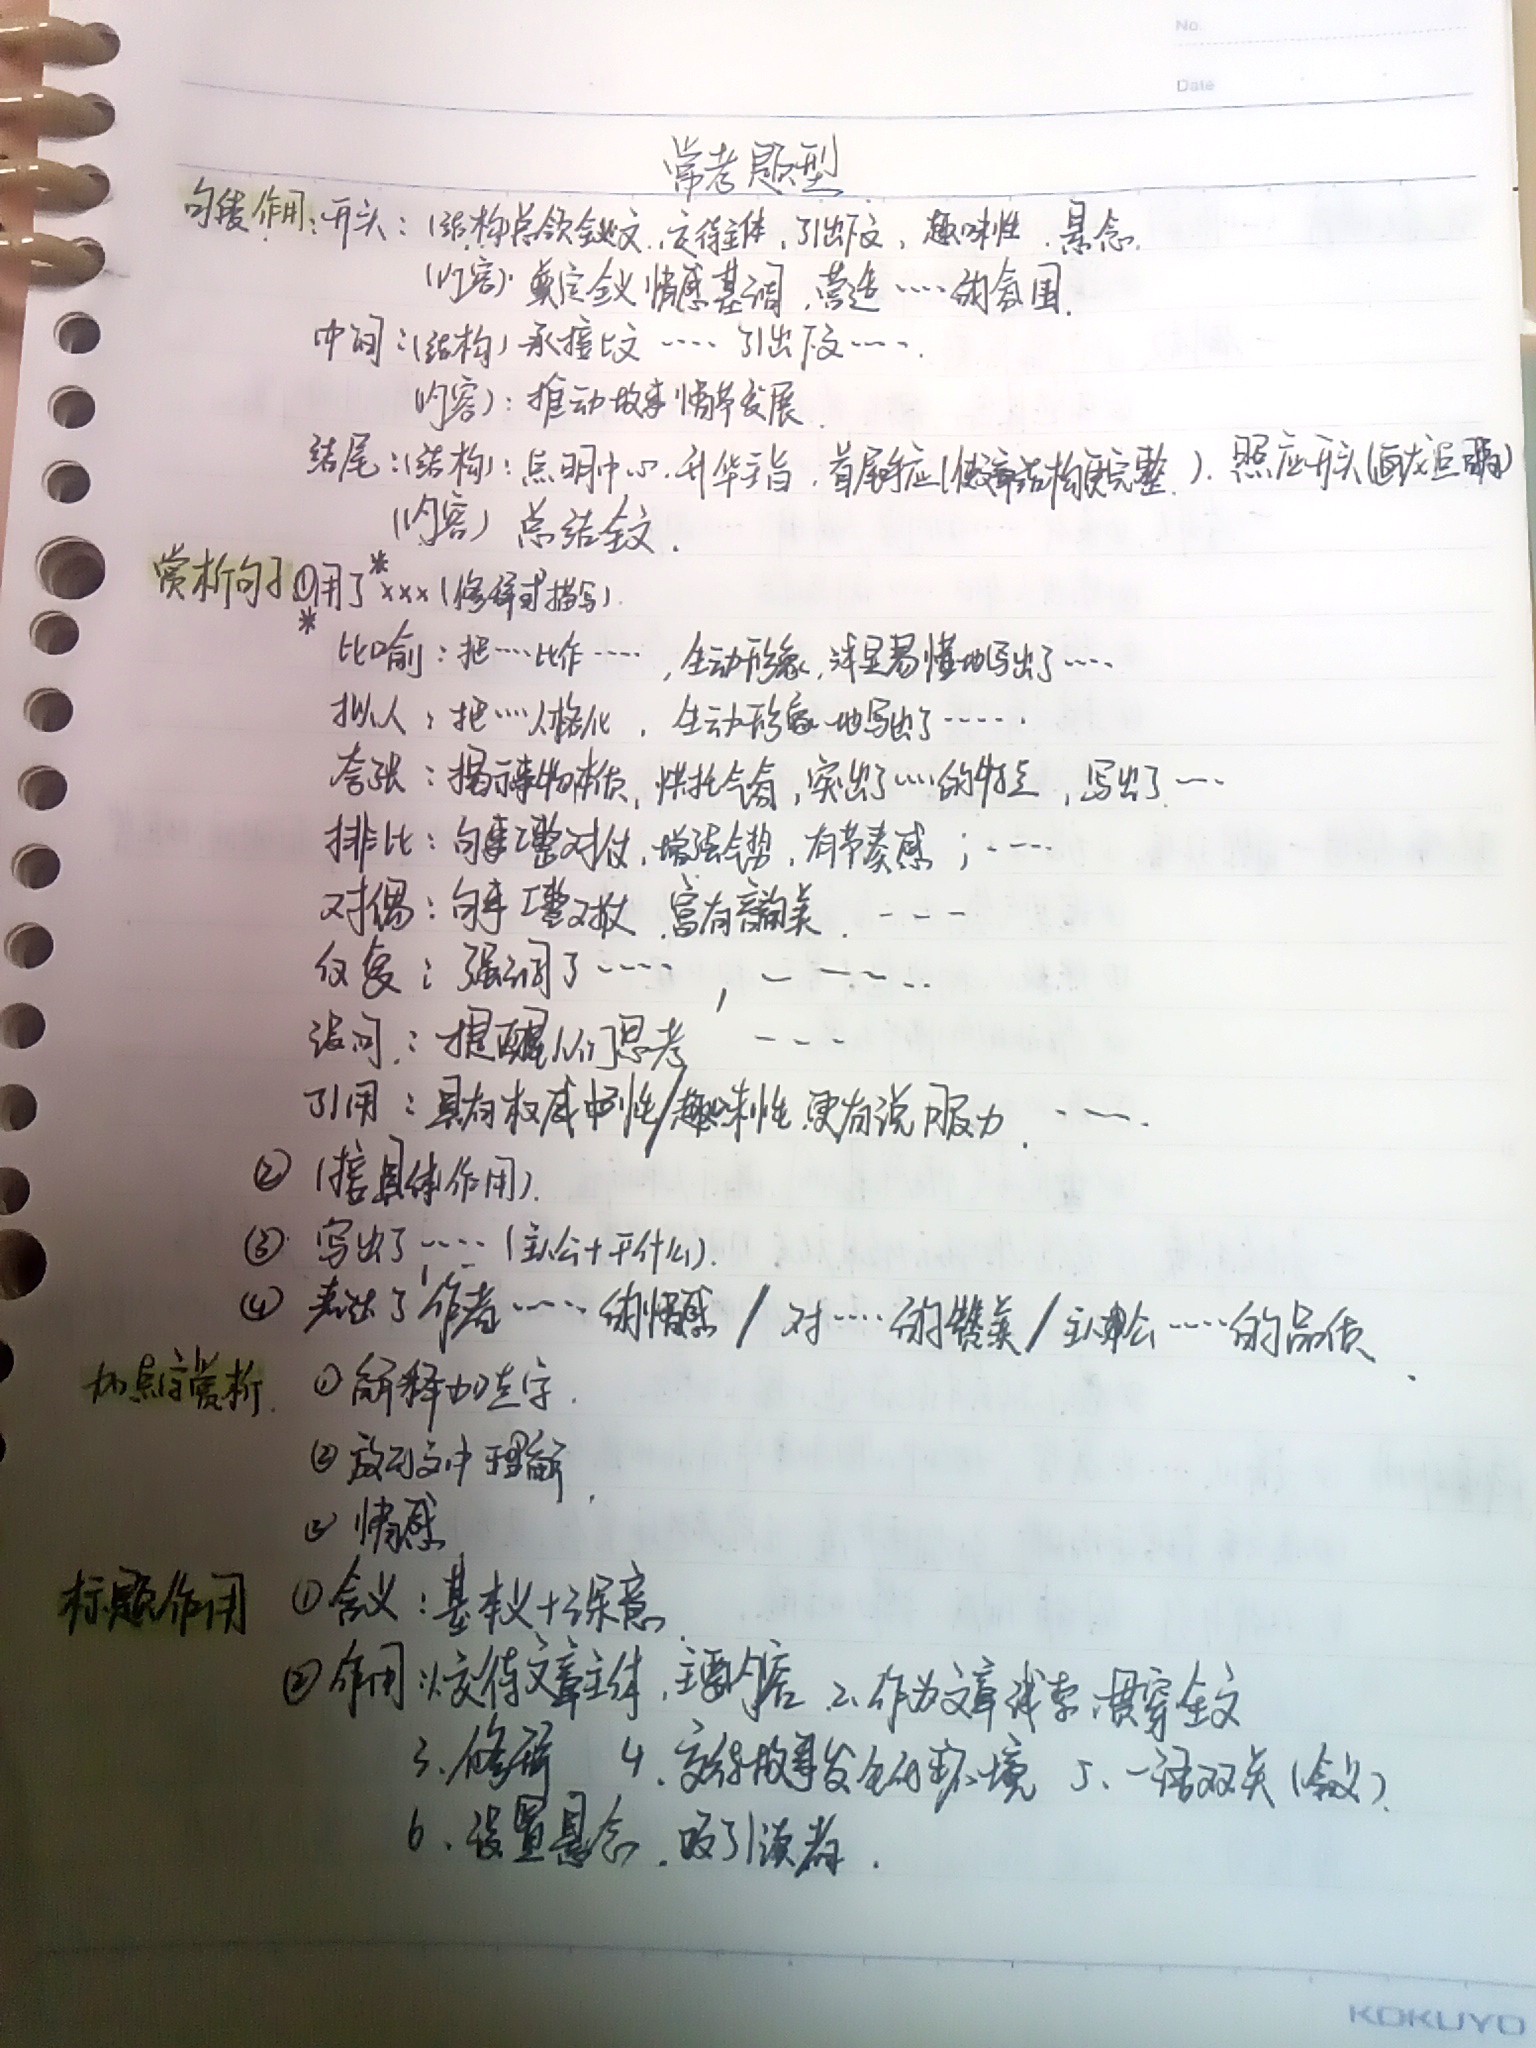 No.
Date
常考题型
句段作用：开头：(结构)总领全文，交待主体，引出下文，趣味性，悬念.
(内容)：奠定全文情感基调，营造……的氛围.
中间：(结构) 承接上文……引出下文…….
(内容)：推动故事情节发展.
结尾：(结构)：点明中心，升华主旨，首尾呼应(使文章结构更完整). 照应开头(画龙点睛)
(内容) 总结全文.
赏析句子 ①用了×××(修辞或描写).
比喻：把……比作……，生动形象，浅显易懂地写出了……
拟人：把……人格化，生动形象地写出了……
夸张：揭示事物本质，烘托气氛，突出了……的特点，写出了……
排比：句式工整对仗，增强气势，有节奏感；……
对偶：句式工整对仗，富有音韵美. ……
反复：强调了……，……
设问：提醒人们思考 ……
引用：具有权威性/趣味性，更有说服力. …….
② (接具体作用).
③ 写出了……(主人公+干什么).
④ 表达了作者……的情感/对……的赞美/主人公……的品质.
加点字赏析. ①解释加点字.
②放到文中理解.
③情感
标题作用 ①含义：基本义+深意.
②作用：1.交待文章主体，主要内容 2、作为文章线索，贯穿全文
3、修辞 4、交待故事发生的环境 5、一语双关(含义).
6、设置悬念，吸引读者.
KOKUYO